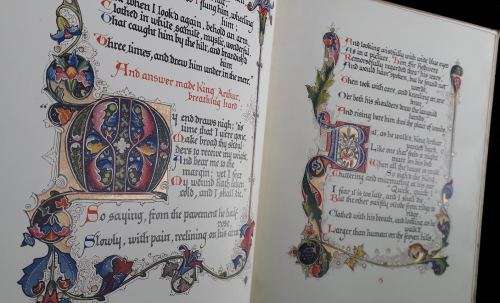 flung him, wheeling
him;
when I look'd again, behold an arm,
Clothed in white samite, mystic, wonderful
That caught him by the hilt, and brandish'd
him
Three times, and drew him under in the mere."
And answer made King Arthur,
breathing hard:
My end draws nigh; 'tis
time that I were gone.
Make broad thy shoul
ders to receive my weight,
And bear me to the
margin; yet I fear
My wound hath taken
cold, and I shall die."
So saying, from the pavement he half
rose,
Slowly, with pain, reclining on his arm
And looking wistfully with wide blue eyes
As in a picture. Him Sir Bedivere
Remorsefully regarded thro' his tears,
And would have spoken, but he found not
Then took with care, and kneeling on one
knee,
O'er both his shoulders drew the languid
hands,
And rising bore him thro' the place of tombs.
as he walk'd, King Arthur
panted hard,
Like one that feels a nightmare
on his bed
When all the house is mute.
So sigh'd the King,
Muttering and murmuring at his ear,
I fear it is too late, and I shall die."
But the other swiftly strode from ridge to
ridge,
Clothed with his breath, and looking, as he
walk'd,
Larger than human on the frozen hills.